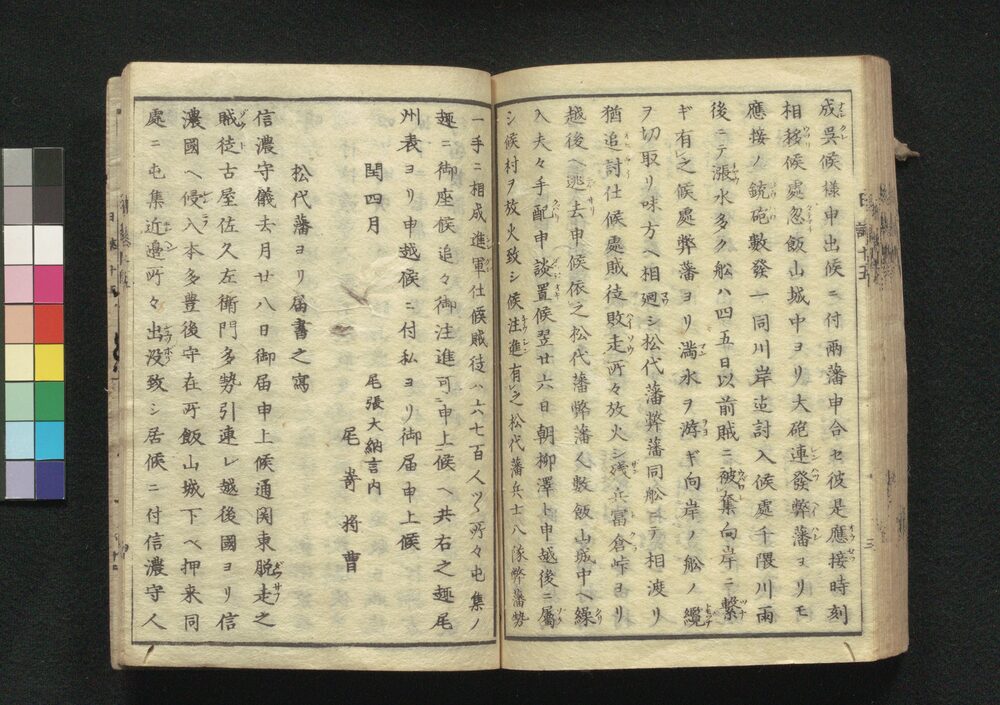 成呉候様申出候ニ付兩藩申合セ彼是應接時刻
相移候處忽飯山城中ヨリ大砲連發弊藩ヨリモ
應接ノ銃砲數發一同川岸迠討入候處千隈川雨
後ニテ漲水多ク舩ハ四五日以前賊ニ被奪向岸ニ繋
ギ有之候處弊藩ヨリ満水ヲ游ギ向岸ノ舩ノ纜
ヲ切取リ味方ヘ相廻シ松代藩弊藩同舩ニテ相渡リ
猶追討仕候處賊徒敗走所々放火シ残兵冨倉峠ヨリ
越後ヘ逃去申候依之松代藩弊藩人數飯山城中ヘ繰
入夫々手配申談置候翌廿六日朝柳澤ト申越後ニ屬
シ候村ヲ放火致シ候注進有之松代藩兵士八隊弊藩勢
一手ニ相成進軍仕候賊徒ハ六七百人ツヽ所々屯集ノ
趣ニ御座候追々御注進可申上候ヘ共右之趣尾
州表ヨリ申越候ニ付私ヨリ御届申上候
閏四月
尾張大納言内
尾嵜將曹
松代藩ヨリ届書之寫
信濃守儀去月廿八日御届申上候通関東脱走之
賊徒古屋佐久左衛門多勢引連レ越後國ヨリ信
濃國ヘ侵入本多豊後守在所飯山城下ヘ押来同
處ニ屯集近邊所々出没致シ居候ニ付信濃守人